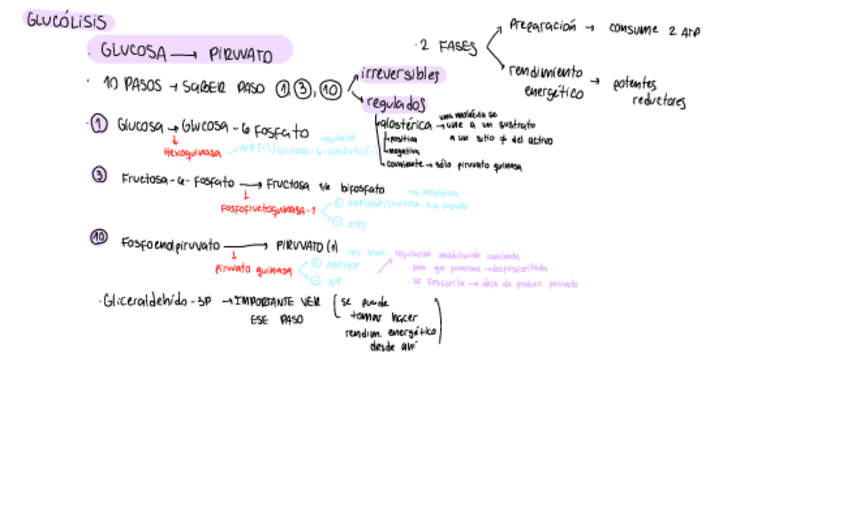 GLUCÓLISIS
· GLUCOSA → PIRUVATO
· 2 FASES
Preparación → consume 2 ATP
rendimiento energético → potentes reductores
· 10 PASOS → SABER PASO ①, ③, ⑩
irreversibles
regulados
alostérica → una molécula se une a un sustrato
a un sitio ≠ del activo
positiva
negativa
covalente → sólo piruvato quinasa
· ① Glucosa → Glucosa-6 Fosfato
Hexoquinasa → ATP(-)/Glucosa-6-Fosfato(-)
regulación
③ Fructosa-6-Fosfato → Fructosa 1/6 bifosfato
Fosfofructoquinasa-1
reg. alostérica
⊕ AMP/ADP/Fructosa-2,6-fosfato
⊖ ATP/
⑩ Fosfoenolpiruvato → PIRUVATO
piruvato quinasa
reg. alost.
⊕ AMP/
⊖ ATP
regulación modulación covalente
· para que funcione → desfosforilada
· se fosforila → deja de producir piruvato
· Gliceraldehído-3P → IMPORTANTE VER
ESE PASO
(se puede
tomar hacer
rendim. energético
desde ahí)